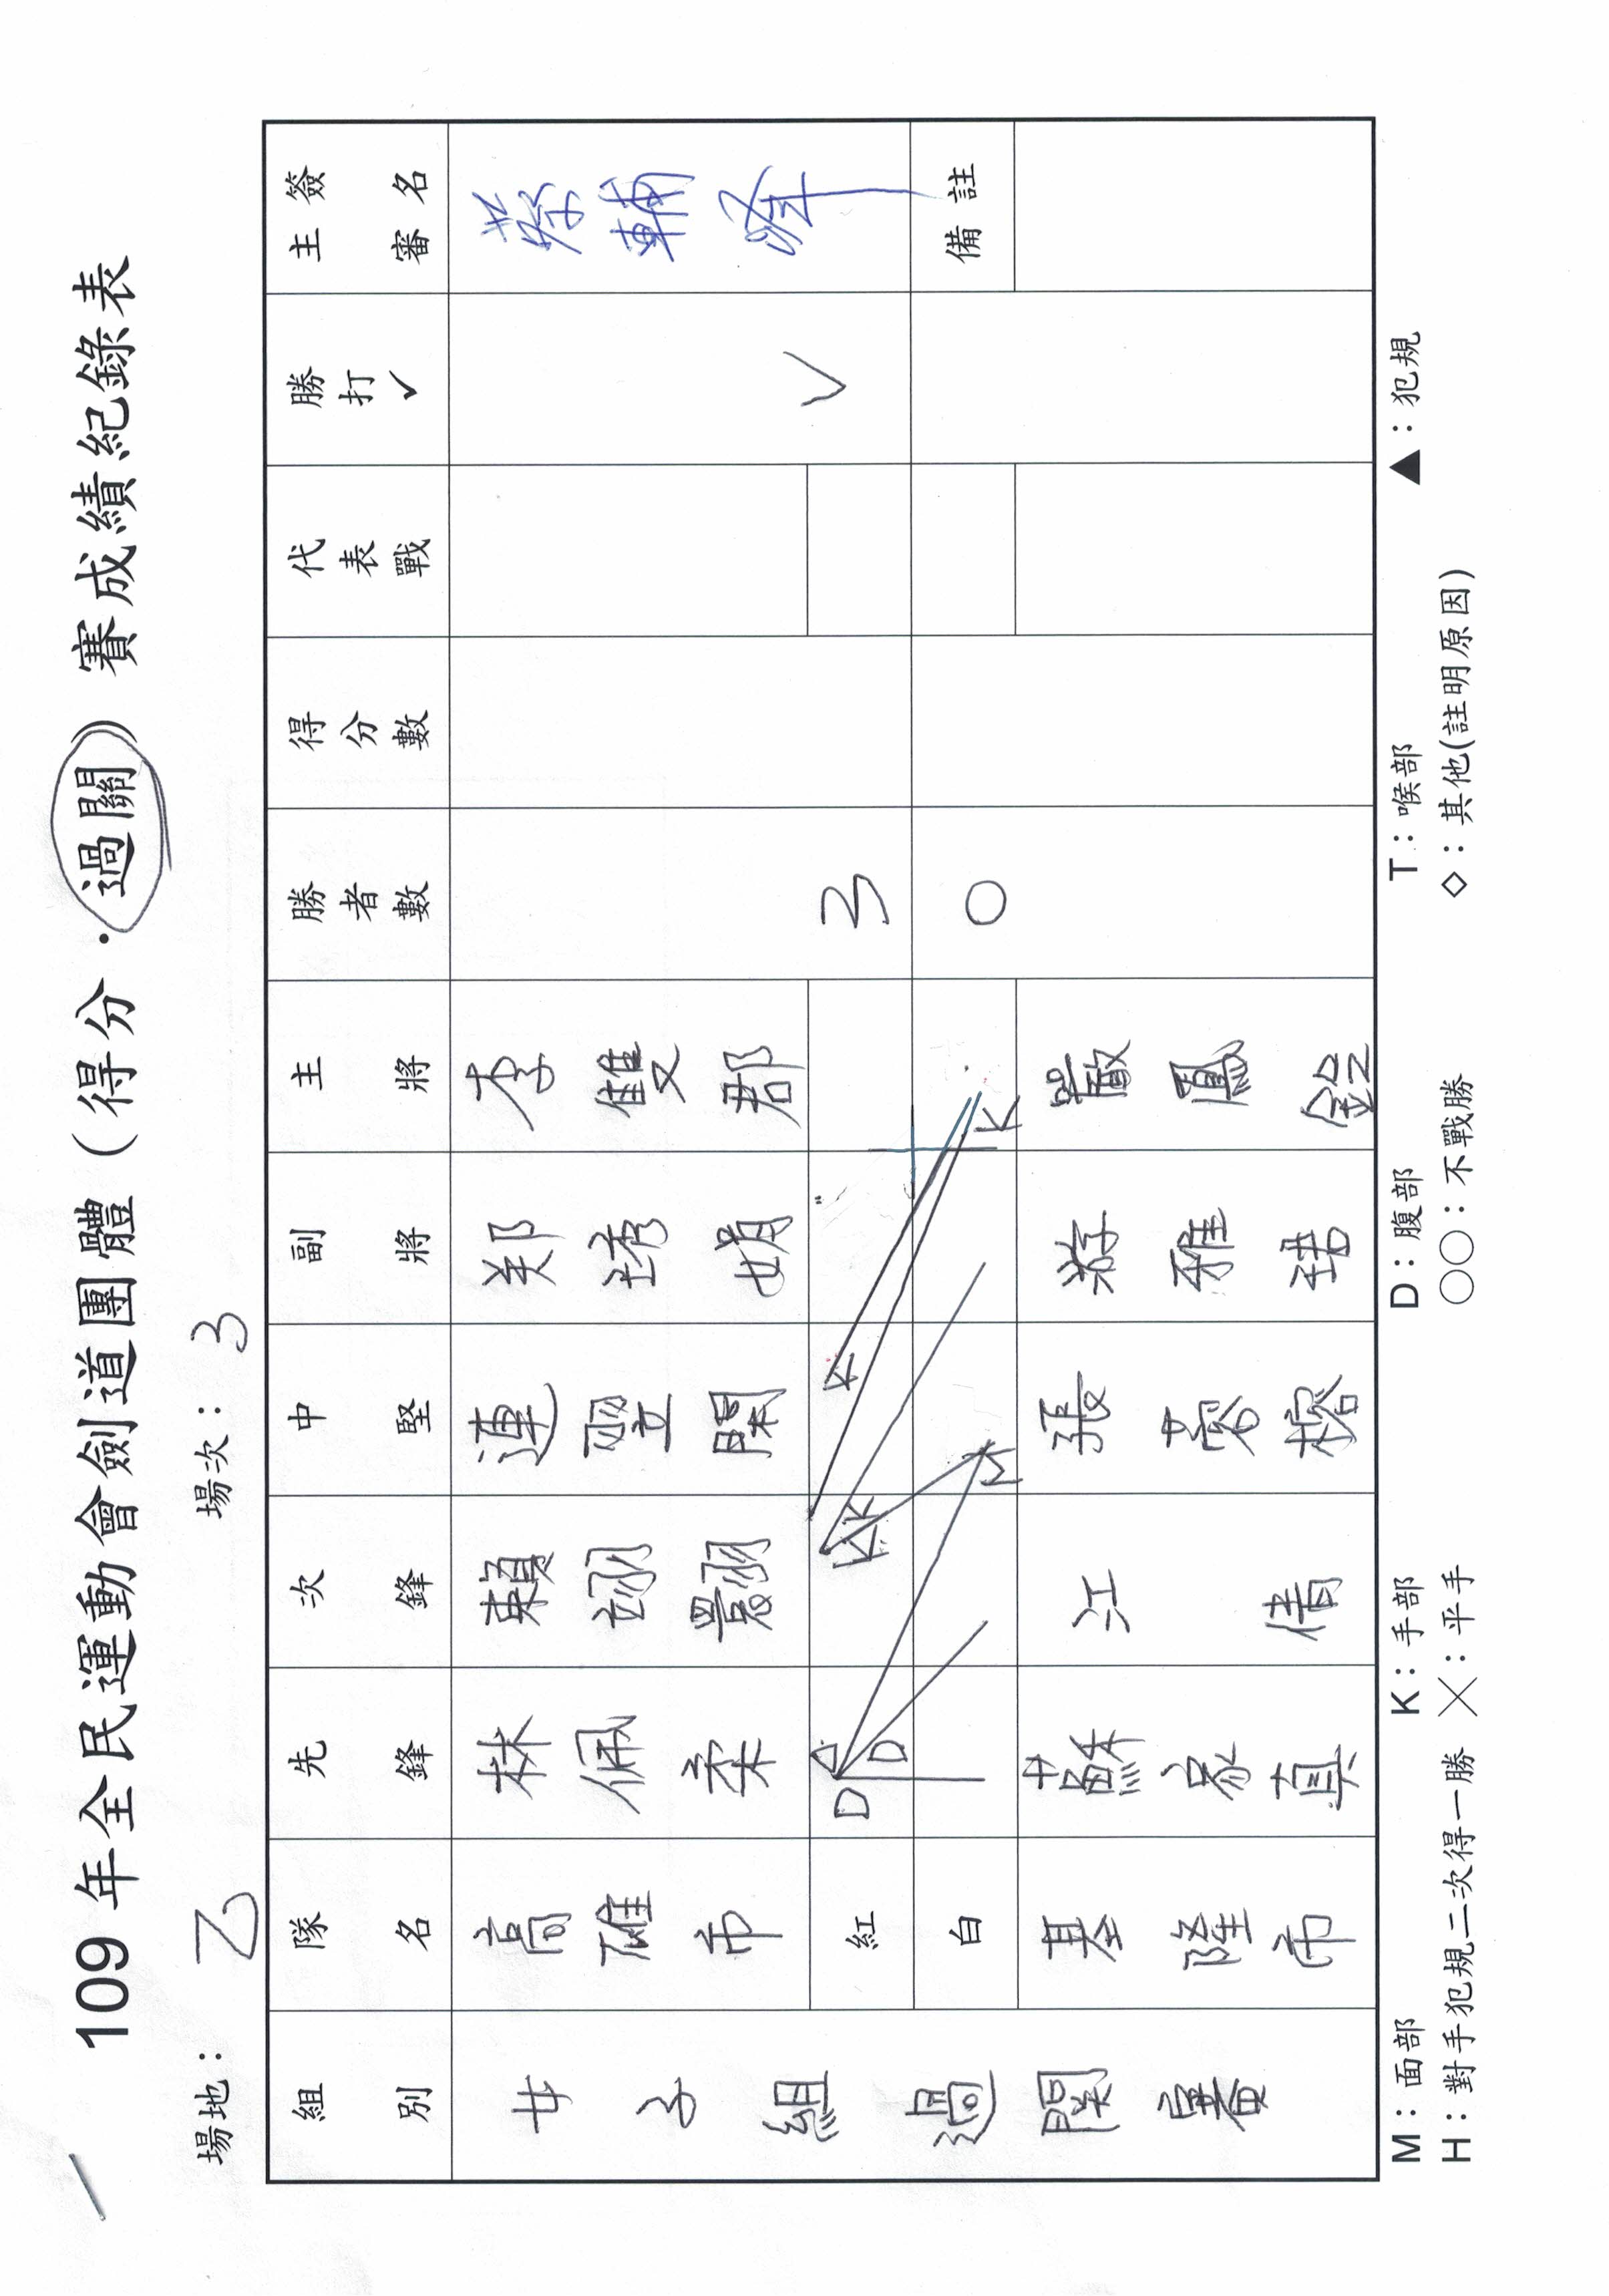 109 年全民運動會劍道團體（得分 · 過關）賽成績紀錄表
場地： 乙 場次： 3
組別 隊名 先鋒 次鋒 中堅 副將 主將 勝者數 得分數 代表戰 勝打✓ 主審簽名
女子組過關賽 高雄市 林佩柔 賴翊 連 郑琇娟 李雙郡 蔡輔
紅 D D △ K K K 3 ✓
白 M K 0 備註
基隆市 蘇家真 江倩 張 游雅 嚴鳳
M：面部 K：手部 D：腹部 T：喉部 ▲：犯規
H：對手犯規二次得一勝 ╳：平手 ○○：不戰勝 ◇：其他(註明原因)